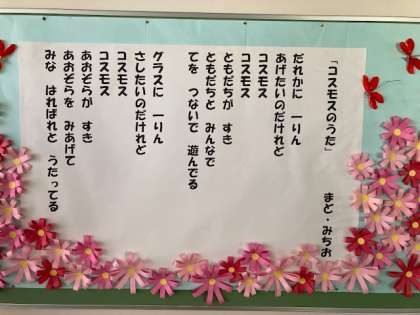 「コスモスのうた」
まど・みちお
だれかに 一りん
あげたいのだけれど
コスモス
コスモス
ともだちが すき
ともだちと みんなで
てを つないで 遊んでる
グラスに 一りん
さしたいのだけれど
コスモス
コスモス
あおぞらが すき
あおぞらを みあげて
みな はればれと うたってる